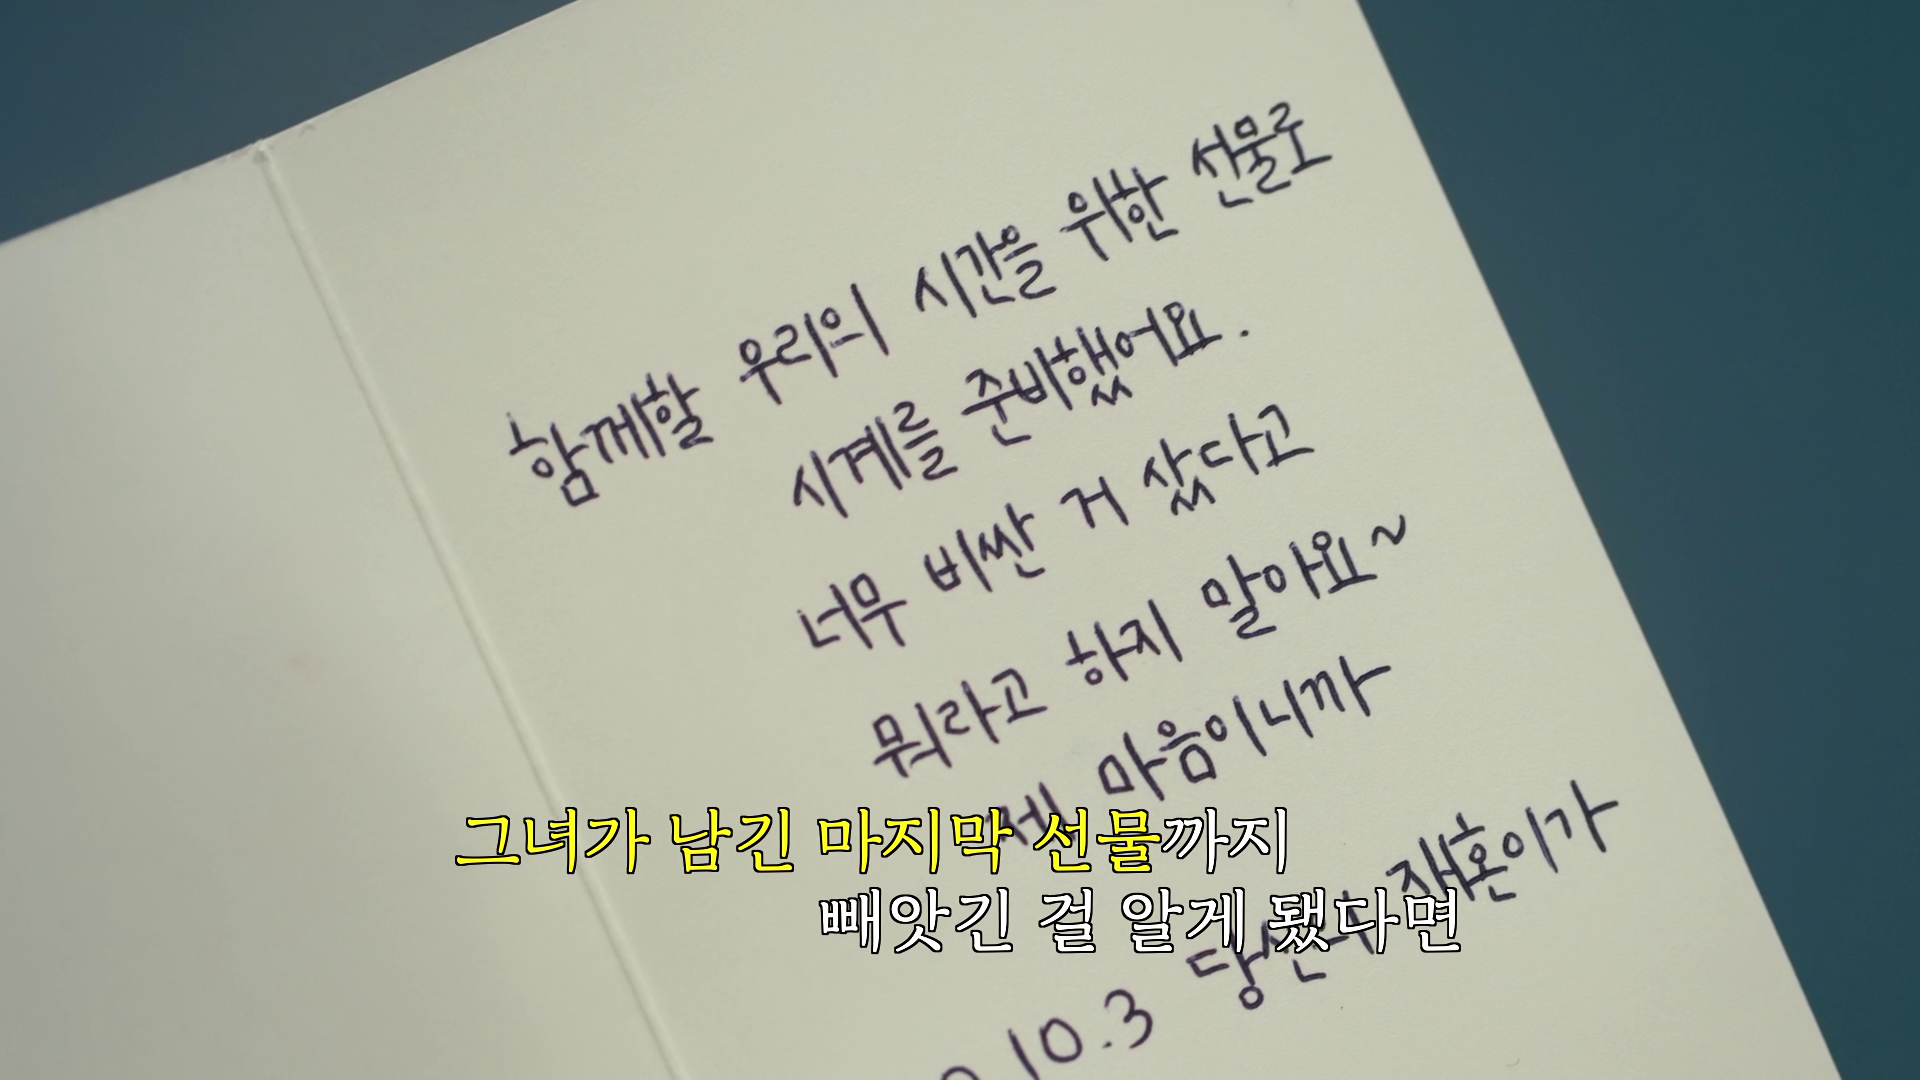 함께할 우리의 시간을 위한 선물로
시계를 준비했어요.
너무 비싼 거 샀다고
뭐라고 하지 말아요~
제 마음이니까
그녀가 남긴 마지막 선물까지
빼앗긴 걸 알게 됐다면
재혼이가
10.3